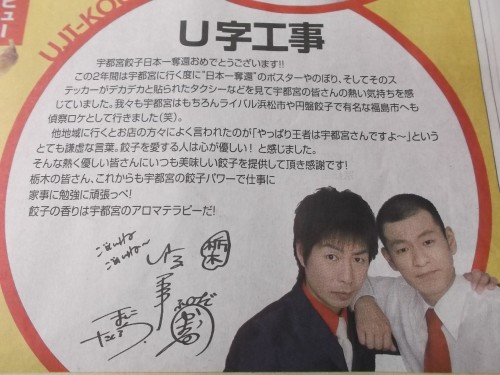 ビュー
UJI-KO
U字工事
宇都宮餃子日本一奪還おめでとうございます!!
この2年間は宇都宮に行く度に"日本一奪還"のポスターやのぼり、そしてそのス
テッカーがデカデカと貼られたタクシーなどを見て宇都宮の皆さんの熱い気持ちを感
じていました。我々も宇都宮はもちろんライバル浜松市や円盤餃子で有名な福島市へも
偵察ロケとして行きました(笑)。
他地域に行くとお店の方々によく言われたのが「やっぱり王者は宇都宮さんですよ〜」という
とても謙虚な言葉。餃子を愛する人は心が優しい!と感じました。
そんな熱く優しい皆さんにいつも美味しい餃子を提供して頂き感謝です!
栃木の皆さん、これからも宇都宮の餃子パワーで仕事に
家事に勉強に頑張っぺ!
餃子の香りは宇都宮のアロマテラピーだ!
ごめんね
ごめんね〜
U字工事
栃木